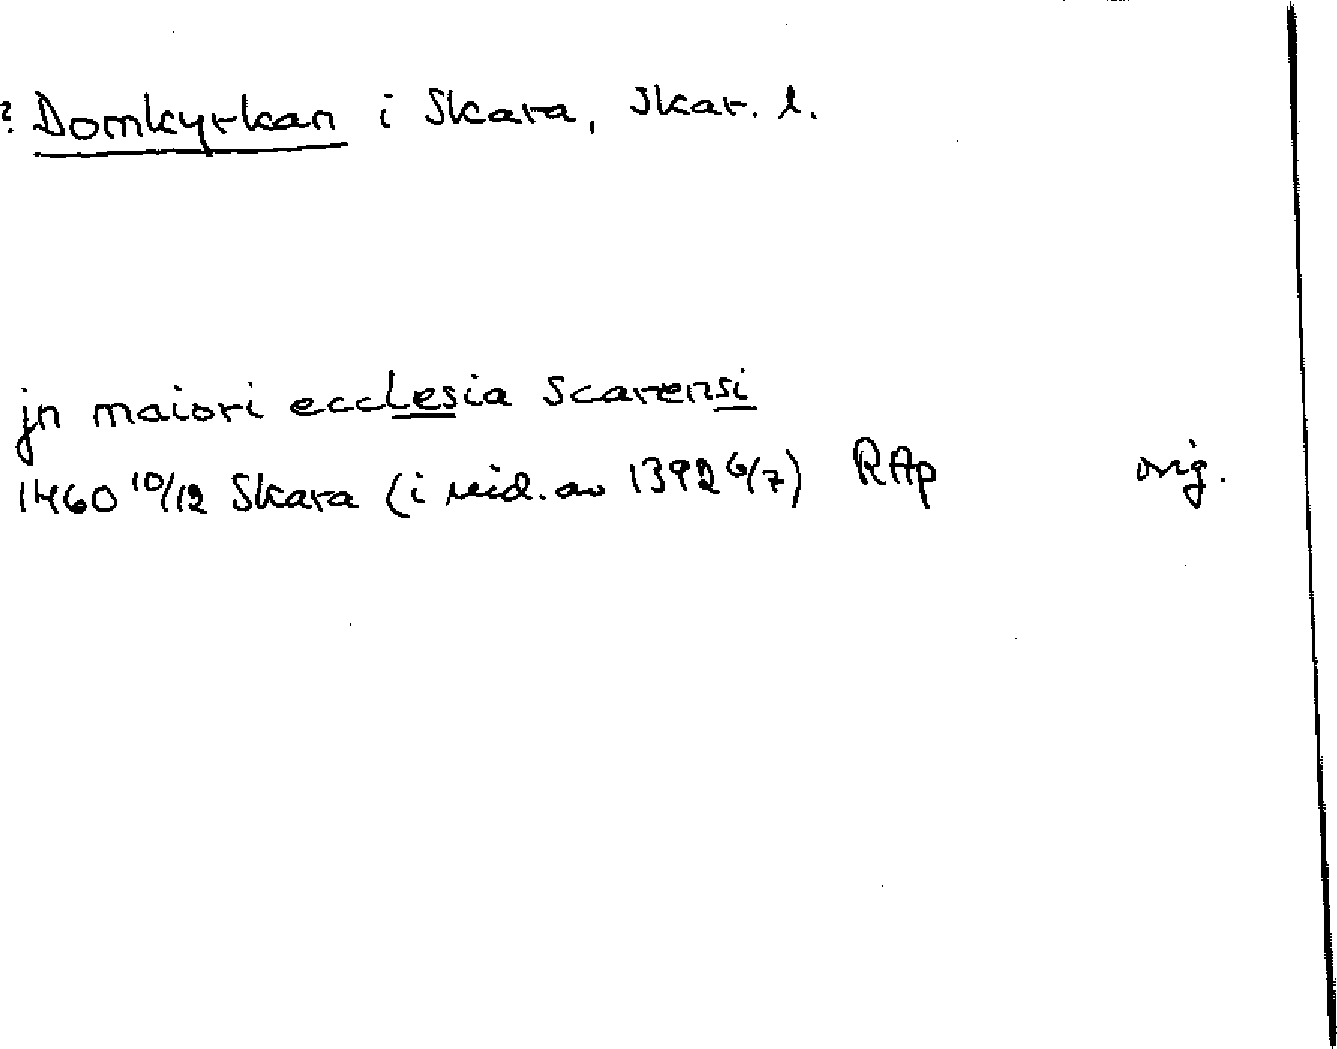 ? Domkyrkan i Skara, Skar. l.
jn maiori ecclesia Scarensi
1460 10/12 Skara (i vid. av 1392 6/7) RAp orig.